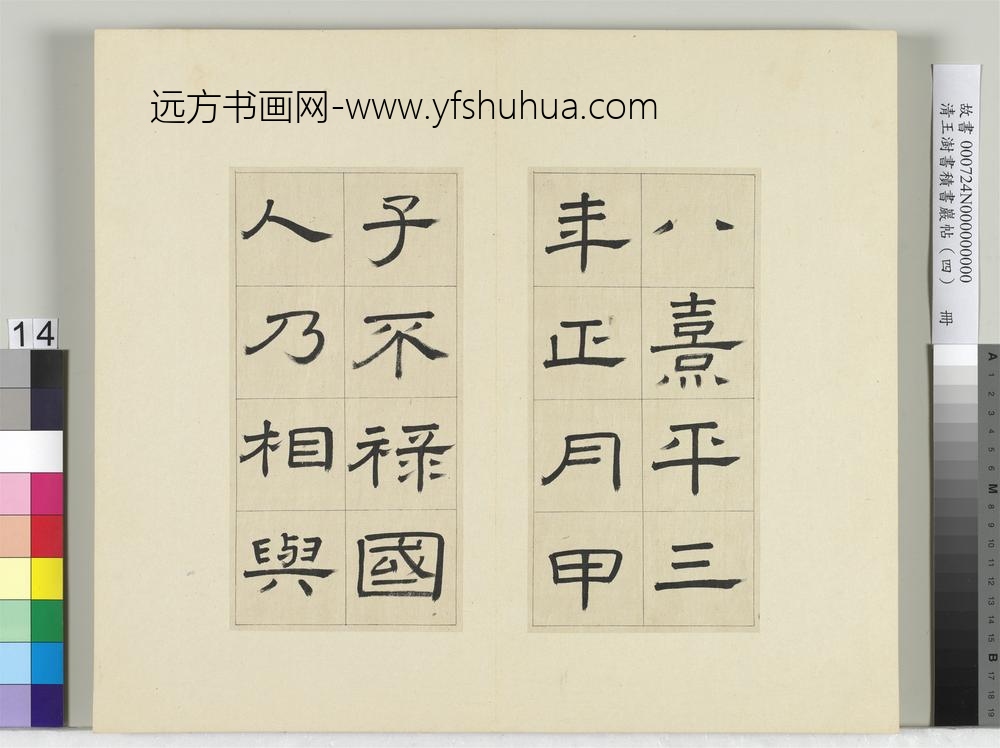 远方书画网-www.yfshuhua.com
八熹平三
年正月甲
子不祿國
人乃相與
故書 000724N000000000
清王澍書積書巖帖（四） 冊
14
A
1
2
3
4
5
6
M
8
9
10
11
12
13
14
15
B
17
18
19